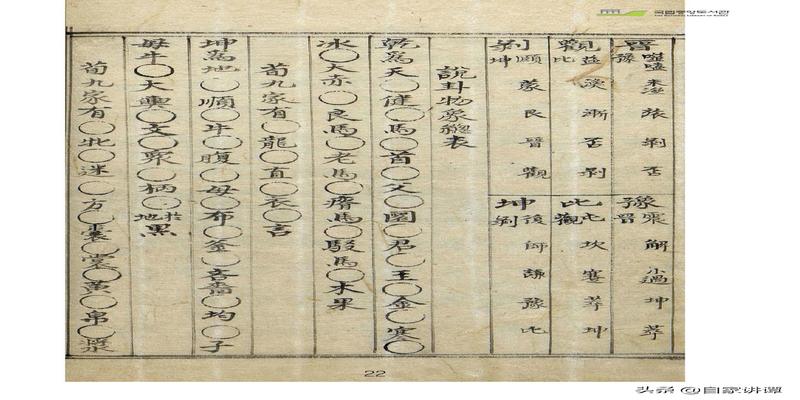 晉 噬嗑 未濟 旅 剝 否
豫
豫 震 解 小過 坤 萃
晉
觀 益 渙 漸 否 剝
比
比 屯 坎 蹇 萃 坤
觀
剝 頤 蒙 艮 晉 觀
坤
坤 復 師 謙 豫 比
剝
說卦物象總表
乾爲天○健○馬○首○父○圜○君○王○金○寒○
冰○大赤○良馬○老馬○瘠馬○駁馬○木果
荀九家有○龍○直○衣○言
坤爲地○順○牛○腹○母○布○釜○吝嗇○均○子
母牛○大輿○文○衆○柄○於地黑
荀九家有○牝○迷○方○囊○裳○黃○帛○漿
22
국립중앙도서관
THE NATIONAL LIBRARY OF KOREA
头条 @自家讲谭